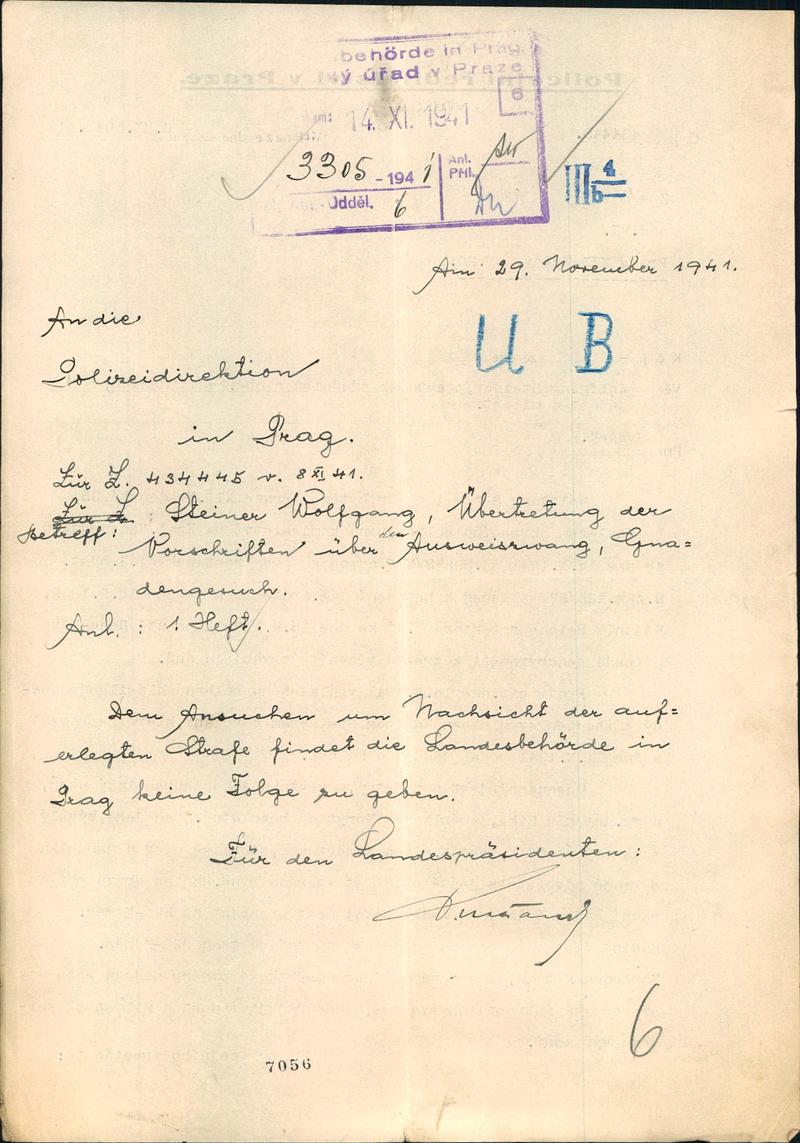 behörde in Prag
ý úřad v Praze
6
14. XI. 1941
3305 - 1941
Ant.
Příl.
Odděl. 6
III 4
b
Am 29. November 1941.
An die
U B
Polizeidirektion
in Prag.
Zur Z. 434445 v. 8 XI 41.
Zur Z : Steiner Wolfgang, Übertretung der
Betreff: Vorschriften über den Ausweiszwang, Gna=
dengesuch.
Anl. : 1 Heft.
Dem Ansuchen um Nachsicht der auf=
erlegten Strafe findet die Landesbehörde in
Prag keine Folge zu geben.
Für den Landespräsidenten :
6
7056